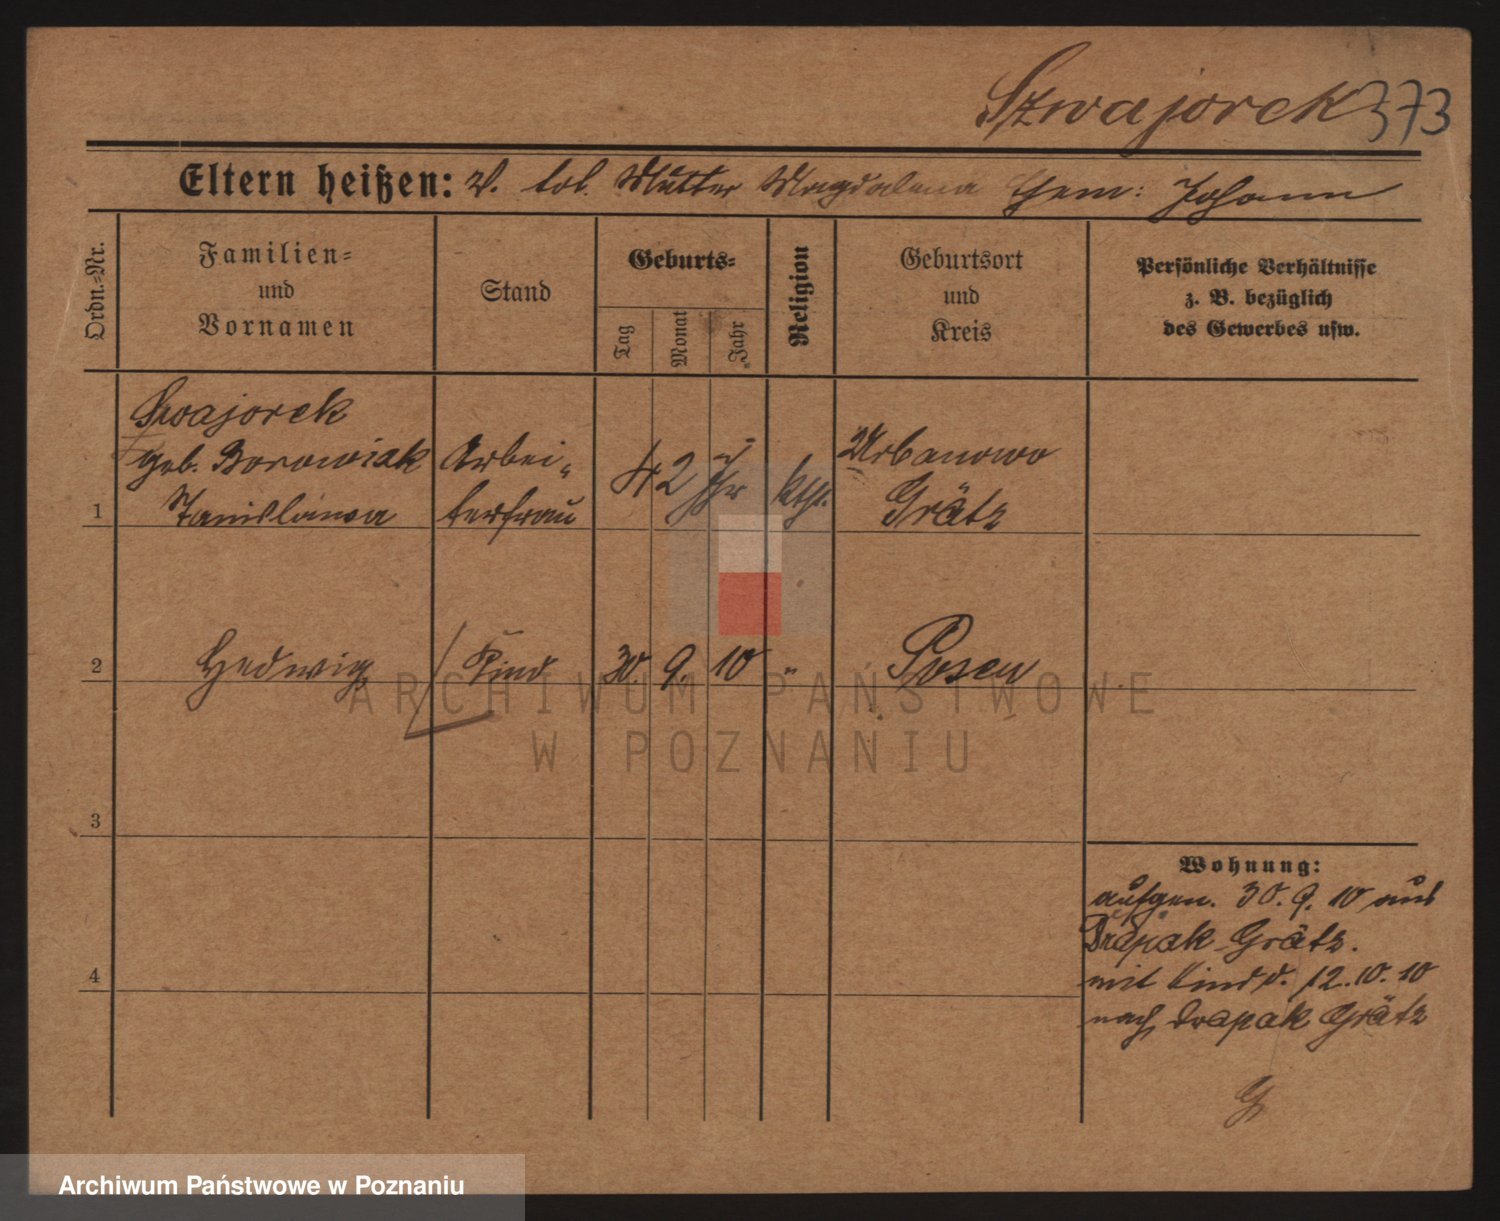 Szwajorek 373
Eltern heißen: V. tot. Mutter Magdalena Ehem: Johann
Ordn.-Nr.
Familien-
und
Vornamen
Stand
Geburts-
Tag
Monat
Jahr
Religion
Geburtsort
und
Kreis
Persönliche Verhältnisse
z. B. bezüglich
des Gewerbes usw.
1
Szwajorek
geb. Borowiak
Stanislawa
Arbei-
terfrau
42 Jhr
kth.
Urbanowo
Grätz
2
Hedwig
Kind
30. 9. 10
"
Posen
3
4
Wohnung:
aufgen. 30. 9. 10 aus
Drapak Grätz.
mit Kind d. 12.10.10
nach Drapak Grätz
ARCHIWUM PAŃSTWOWE
W POZNANIU
Archiwum Państwowe w Poznaniu